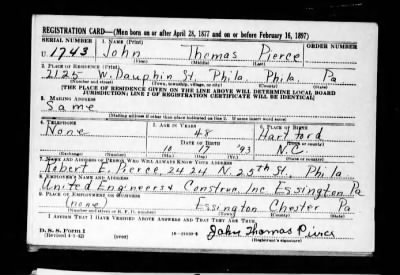 REGISTRATION CARD—(Men born on or after April 28, 1877 and on or before February 16, 1897)
SERIAL NUMBER 1. NAME (Print) ORDER NUMBER
U 1743 John Thomas Pierce
(First) (Middle) (Last)
2. PLACE OF RESIDENCE (Print)
2125 W. Dauphin St. Phila. Phila. Pa
(Number and street) (Town, township, village, or city) (County) (State)
[THE PLACE OF RESIDENCE GIVEN ON THE LINE ABOVE WILL DETERMINE LOCAL BOARD
JURISDICTION; LINE 2 OF REGISTRATION CERTIFICATE WILL BE IDENTICAL]
3. MAILING ADDRESS
Same
[Mailing address if other than place indicated on line 2. If same insert word same]
4. TELEPHONE 5. AGE IN YEARS 6. PLACE OF BIRTH
None 48 Hartford
DATE OF BIRTH
10 17 '93 N.C.
(Exchange) (Number) (Mo.) (Day) (Yr.) (State or country)
7. NAME AND ADDRESS OF PERSON WHO WILL ALWAYS KNOW YOUR ADDRESS
Robert E. Pierce 2424 N. 25th St. Phila
8. EMPLOYER'S NAME AND ADDRESS
United Engineers & Construc. Inc. Essington Pa
9. PLACE OF EMPLOYMENT OR BUSINESS
(none) Essington Chester Pa
(Number and street or R. F. D. number) (Town) (County) (State)
I AFFIRM THAT I HAVE VERIFIED ABOVE ANSWERS AND THAT THEY ARE TRUE.
D. S. S. Form 1
(Revised 4-1-42) (over) John Thomas Pierce
(Registrant's signature)